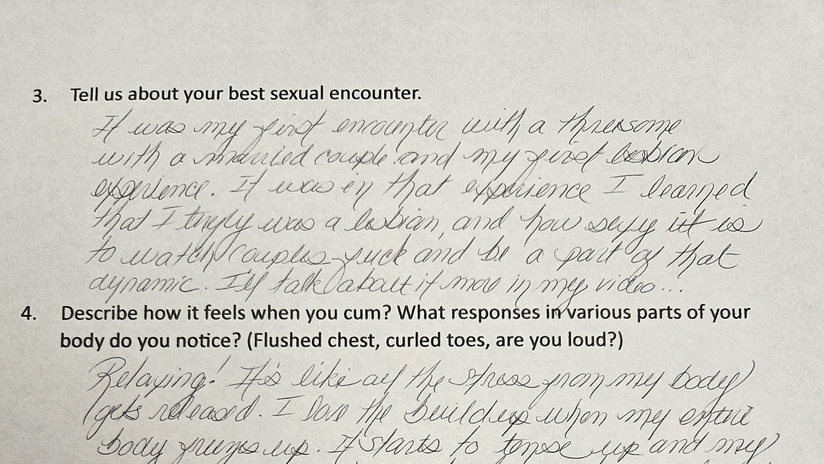 3. Tell us about your best sexual encounter.
It was my first encounter with a threesome
with a married couple and my first lesbian
experience. It was in that experience I learned
that I truly was a lesbian, and how sexy it is
to watch couples fuck and be a part of that
dynamic. I'll talk about it more in my video...
4. Describe how it feels when you cum? What responses in various parts of your
body do you notice? (Flushed chest, curled toes, are you loud?)
Relaxing! It's like all the stress from my body
gets released. I love the buildup when my entire
body freezes up. It starts to tense up and my